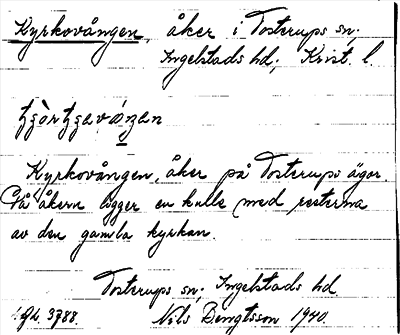 Kyrkovången, åker i Tosterups sn;
Ingelstads hd; Krist. l.
Kyrkovången, åker på Tosterups ägor.
På åkern ligger en kulle med resterna
av den gamla kyrkan.
Tosterups sn; Ingelstads hd
3788. Nils Bengtsson 1940.